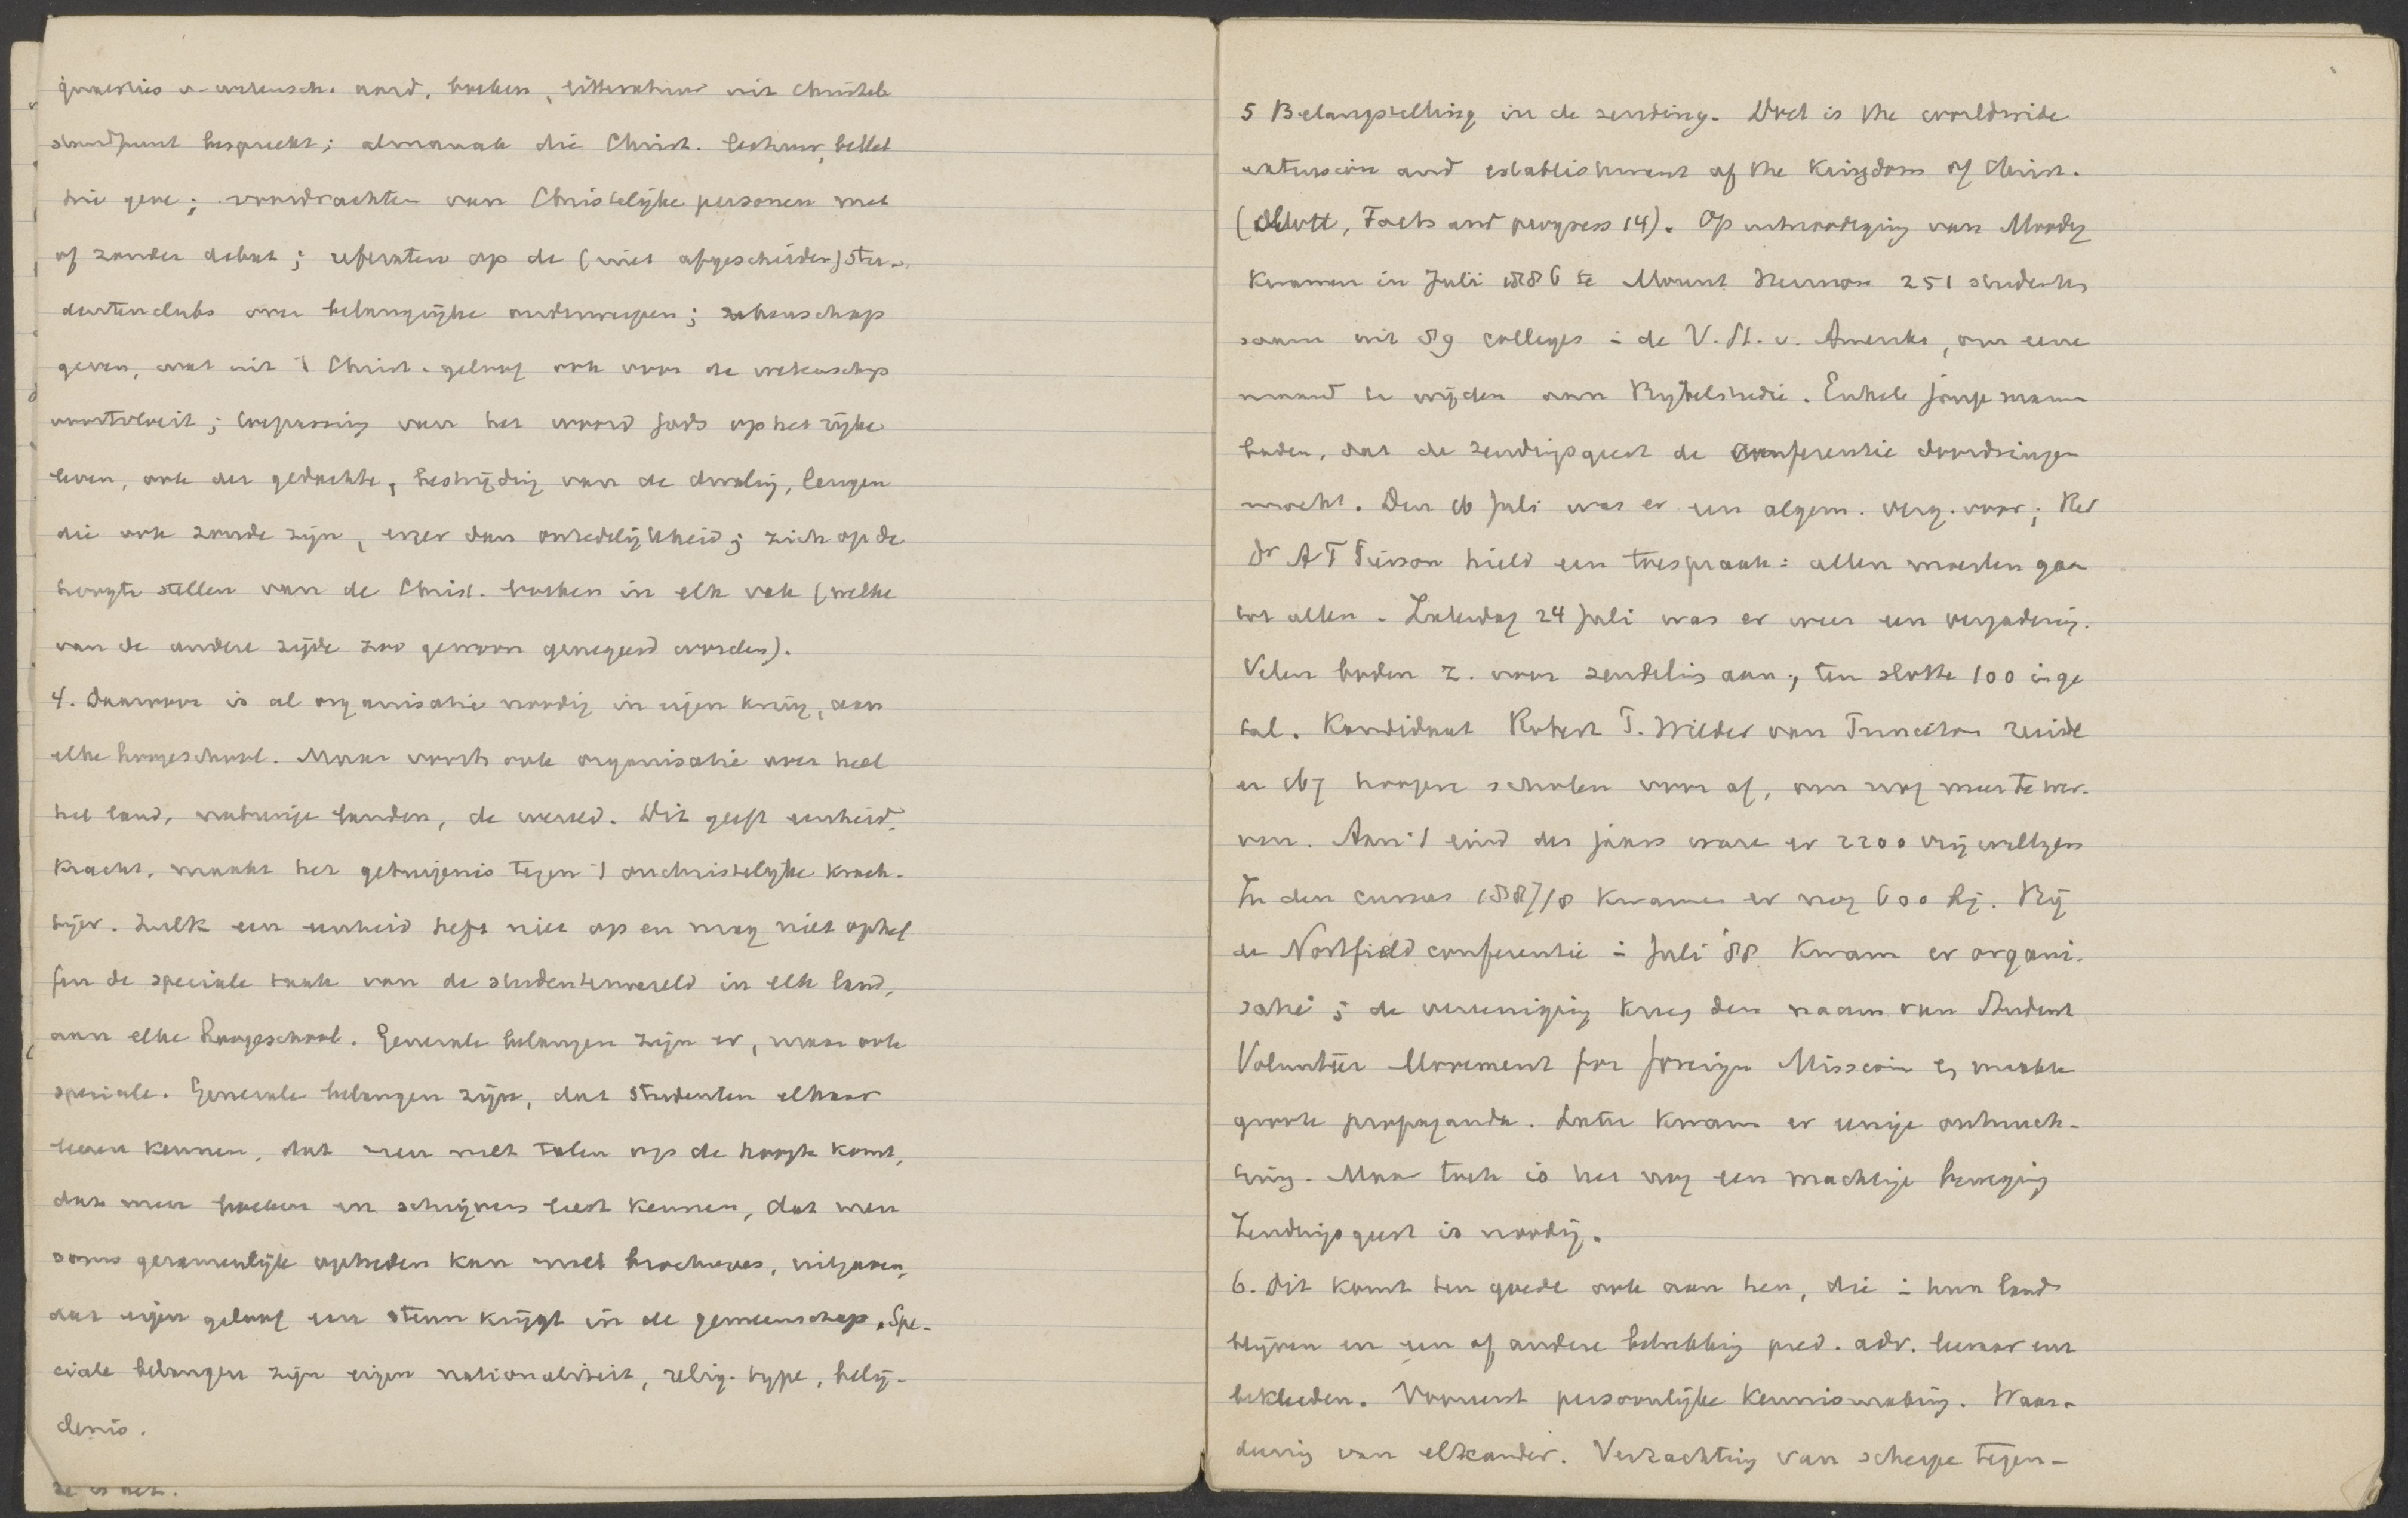 quaesties v. wetensch. aard, boeken, litteratuur uit Christel.
standpunt bespreekt; almanak die Christ. lectuur, bellet
trie geve; voordrachten van Christelijke personen met
of zonder debat; referaten op de (niet afgescheiden) stu-
dentenclubs over belangrijke onderwerpen; rekenschap
geven, wat uit 't Christ. geloof ook voor de wetenschap
voortvloeit; toepassing van het woord Gods op het rijke
leven, ook der gedachte, bestrijding van de dwaling, leugen
die ook zonde zijn, erger dan onzedelijkheid; zich op de
hoogte stellen van de Christ. boeken in elk vak (welke
van de andere zijde zoo gewoon genegeerd worden).
4. Daarvoor is al organisatie noodig in eigen kring, aan
elke hoogeschool. Maar voorts ook organisatie over heel
het land, naburige landen, de wereld. Dit geeft eenheid,
kracht, maakt het getuigenis tegen 't onchristelijke krach-
tiger. Zulk een eenheid heft niet op en mag niet ophef
fen de speciale taak van de studentenwereld in elk land,
aan elke Hoogeschool. Generale belangen zijn er, maar ook
speciale. Generale belangen zijn, dat studenten elkaar
leeren kennen, dat men met talen op de hoogte komt,
dat men boeken en schrijvers leert kennen, dat men
soms gezamenlijk optreden kan met brochures, uitgaven,
dat eigen geloof een steun krijgt in de gemeenschap. Spe-
ciale belangen zijn eigen nationaliteit, relig. type, belij-
denis.
ze is het.
5 Belangstelling in de zending. Doel is the worldwide
extension and establishment of the Kingdom of Christ.
(Mott, Facts and progress 14). Op uitnoodiging van Moody
kwamen in Juli 1886 te Mount Hermon 251 students
saam uit 89 colleges i de V. St. v. Amerika, om eene
maand te wijden aan Bijbelstudie. Enkele jonge mannen
baden, dat de zendingsgeest de conferentie doordringen
mocht. Den 16 Juli was er een algem. verg. voor; Rev
Dr A T Pierson hield een toespraak: allen moesten gaan
tot allen. Zaterdag 24 Juli was er weer een vergadering.
Velen boden z. voor zendeling aan, ten slotte 100 in ge
tal. Kandidaat Robert P. Wilder van Princeton reisde
er 167 hoogere scholen voor af, om nog meer te wer-
ven. Aan 't eind des jaars ware er 2200 vrijwilligers
In den cursus 1887/8 kwamen er nog 600 bij. Bij
de Northfield conferentie i Juli '88 kwam er organi-
satie; de vereeniging kreeg den naam van Student
Volunteer Movement for foreign Mission en maakte
groote propaganda. Later kwam er eenige ontnuch-
tering. Maar toch is het nog een machtige beweging
Zendingsgeest is noodig.
6. Dit komt ten goede ook aan hen, die i hun land
blijven en een of andere betrekking pred. adv. leeraar enz
bekleeden. Vooreerst persoonlijke kennismaking. Waar-
deering van elkander. Verzachting van scherpe tegen-